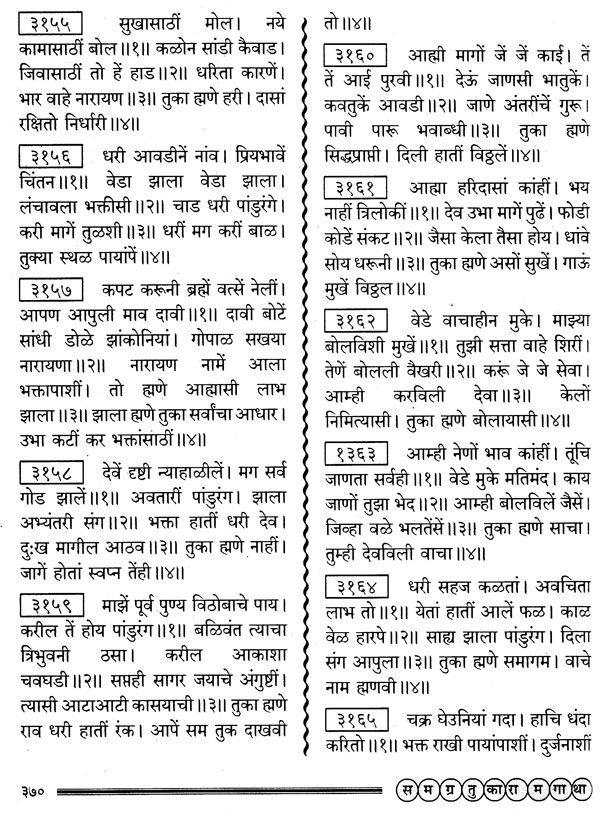 ३१५५ सुखासाठीं मोल। नये
कामासाठीं बोल॥१॥ कळोन सांडी कैवाड।
जिवासाठीं तो हें हाड॥२॥ धरिता कारणें।
भार वाहे नारायण॥३॥ तुका ह्मणे हरी। दासां
रक्षितो निर्धारी॥४॥
३१५६ धरी आवडीनें नांव। प्रियभावें
चिंतन॥१॥ वेडा झाला वेडा झाला।
लंचावला भक्तीसी॥२॥ चाड धरी पांडुरंगे।
करी मागें तुळशी॥३॥ धरीं मग करीं बाळ।
तुक्या स्थळ पायांपें॥४॥
३१५७ कपट करूनी ब्रह्में वत्सें नेलीं।
आपण आपुली माव दावी॥१॥ दावी बोटें
सांधी डोळे झांकोनियां। गोपाळ सखया
नारायणा॥२॥ नारायण नामें आला
भक्तापाशीं। तो ह्मणे आह्मासी लाभ
झाला॥३॥ झाला ह्मणे तुका सर्वांचा आधार।
उभा कटीं कर भक्तांसाठीं॥४॥
३१५८ देवें दृष्टी न्याहाळीलें। मग सर्व
गोड झालें॥१॥ अवतारीं पांडुरंग। झाला
अभ्यंतरी संग॥२॥ भक्ता हातीं धरी देव।
दुःख मागील आठव॥३॥ तुका ह्मणे नाहीं।
जागें होतां स्वप्न तेंही॥४॥
३१५९ माझें पूर्व पुण्य विठोबाचे पाय।
करील तें होय पांडुरंग॥१॥ बळिवंत त्याचा
त्रिभुवनी ठसा। करील आकाशा
चवघडी॥२॥ सप्तही सागर जयाचे अंगुष्टीं।
त्यासी आटाआटी कासयाची॥३॥ तुका ह्मणे
राव धरी हातीं रंक। आपें सम तुक दाखवी
तो॥४॥
३१६० आह्मी मागों जें जें काई। तें
तें आई पुरवी॥१॥ देऊं जाणसी भातुकें।
कवतुकें आवडी॥२॥ जाणे अंतरींचें गुरू।
पावी पारू भवाब्धी॥३॥ तुका ह्मणे
सिद्धप्राप्ती। दिली हातीं विठ्ठलें॥४॥
३१६१ आह्मा हरिदासां कांहीं। भय
नाहीं त्रिलोकीं॥१॥ देव उभा मागें पुढें। फोडी
कोडें संकट॥२॥ जैसा केला तैसा होय। धांवे
सोय धरूनी॥३॥ तुका ह्मणे असों सुखें। गाऊं
मुखें विठ्ठल॥४॥
३१६२ वेडे वाचाहीन मुके। माझ्या
बोलविशी मुखें॥१॥ तुझी सत्ता वाहे शिरीं।
तेणें बोलली वैखरी॥२॥ करूं जे जे सेवा।
आम्ही करविली देवा॥३॥ केलों
निमित्यासी। तुका ह्मणे बोलायासी॥४॥
१३६३ आम्ही नेणों भाव कांहीं। तूंचि
जाणता सर्वही॥१॥ वेडे मुके मतिमंद। काय
जाणों तुझा भेद॥२॥ आम्ही बोलविलें जैसें।
जिव्हा वळे भलतेंसें॥३॥ तुका ह्मणे साचा।
तुम्ही देवविली वाचा॥४॥
३१६४ धरी सहज कळतां। अवचिता
लाभ तो॥१॥ येतां हातीं आलें फळ। काळ
वेळ हारपे॥२॥ साह्य झाला पांडुरंग। दिला
संग आपुला॥३॥ तुका ह्मणे समागम। वाचे
नाम ह्मणवी॥४॥
३१६५ चक्र घेउनियां गदा। हाचि धंदा
करितो॥१॥ भक्त राखी पायांपाशीं। दुर्जनाशीं
३७० समग्र तुकाराम गाथा